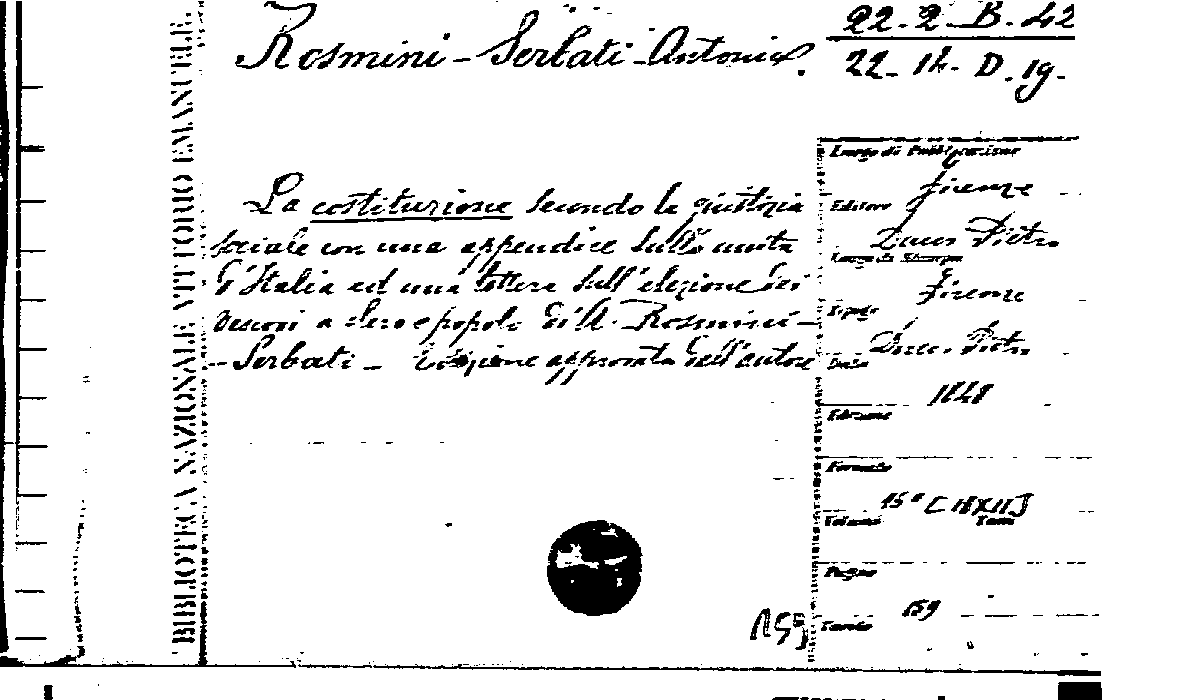 BIBLIOTECA NAZIONALE VITTORIO EMANUELE
Rosmini-Serbati Antonio.
22. 2. B. 42
22. 14. D. 19.
La costituzione secondo la giustizia
sociale con una appendice sulla unità
d'Italia ed una lettera sull'elezione dei
vescovi a clero e popolo di A. Rosmini-
-Serbati - Edizione approvata dall'autore
Luogo di Pubblicazione
Firenze
Editore
Ducci Pietro
Luogo di Stampa
Firenze
Tipogr.
Ducci Pietro
Data
1848
Edizione
Formato
Volume
Tomi
Pagine
159
Tavole